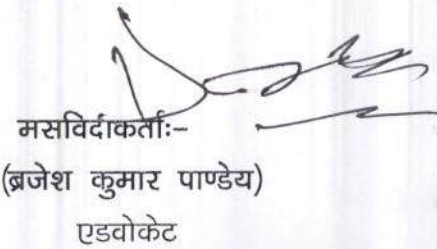 मसविदाकर्ताः-
(ब्रजेश कुमार पाण्डेय)
एडवोकेट